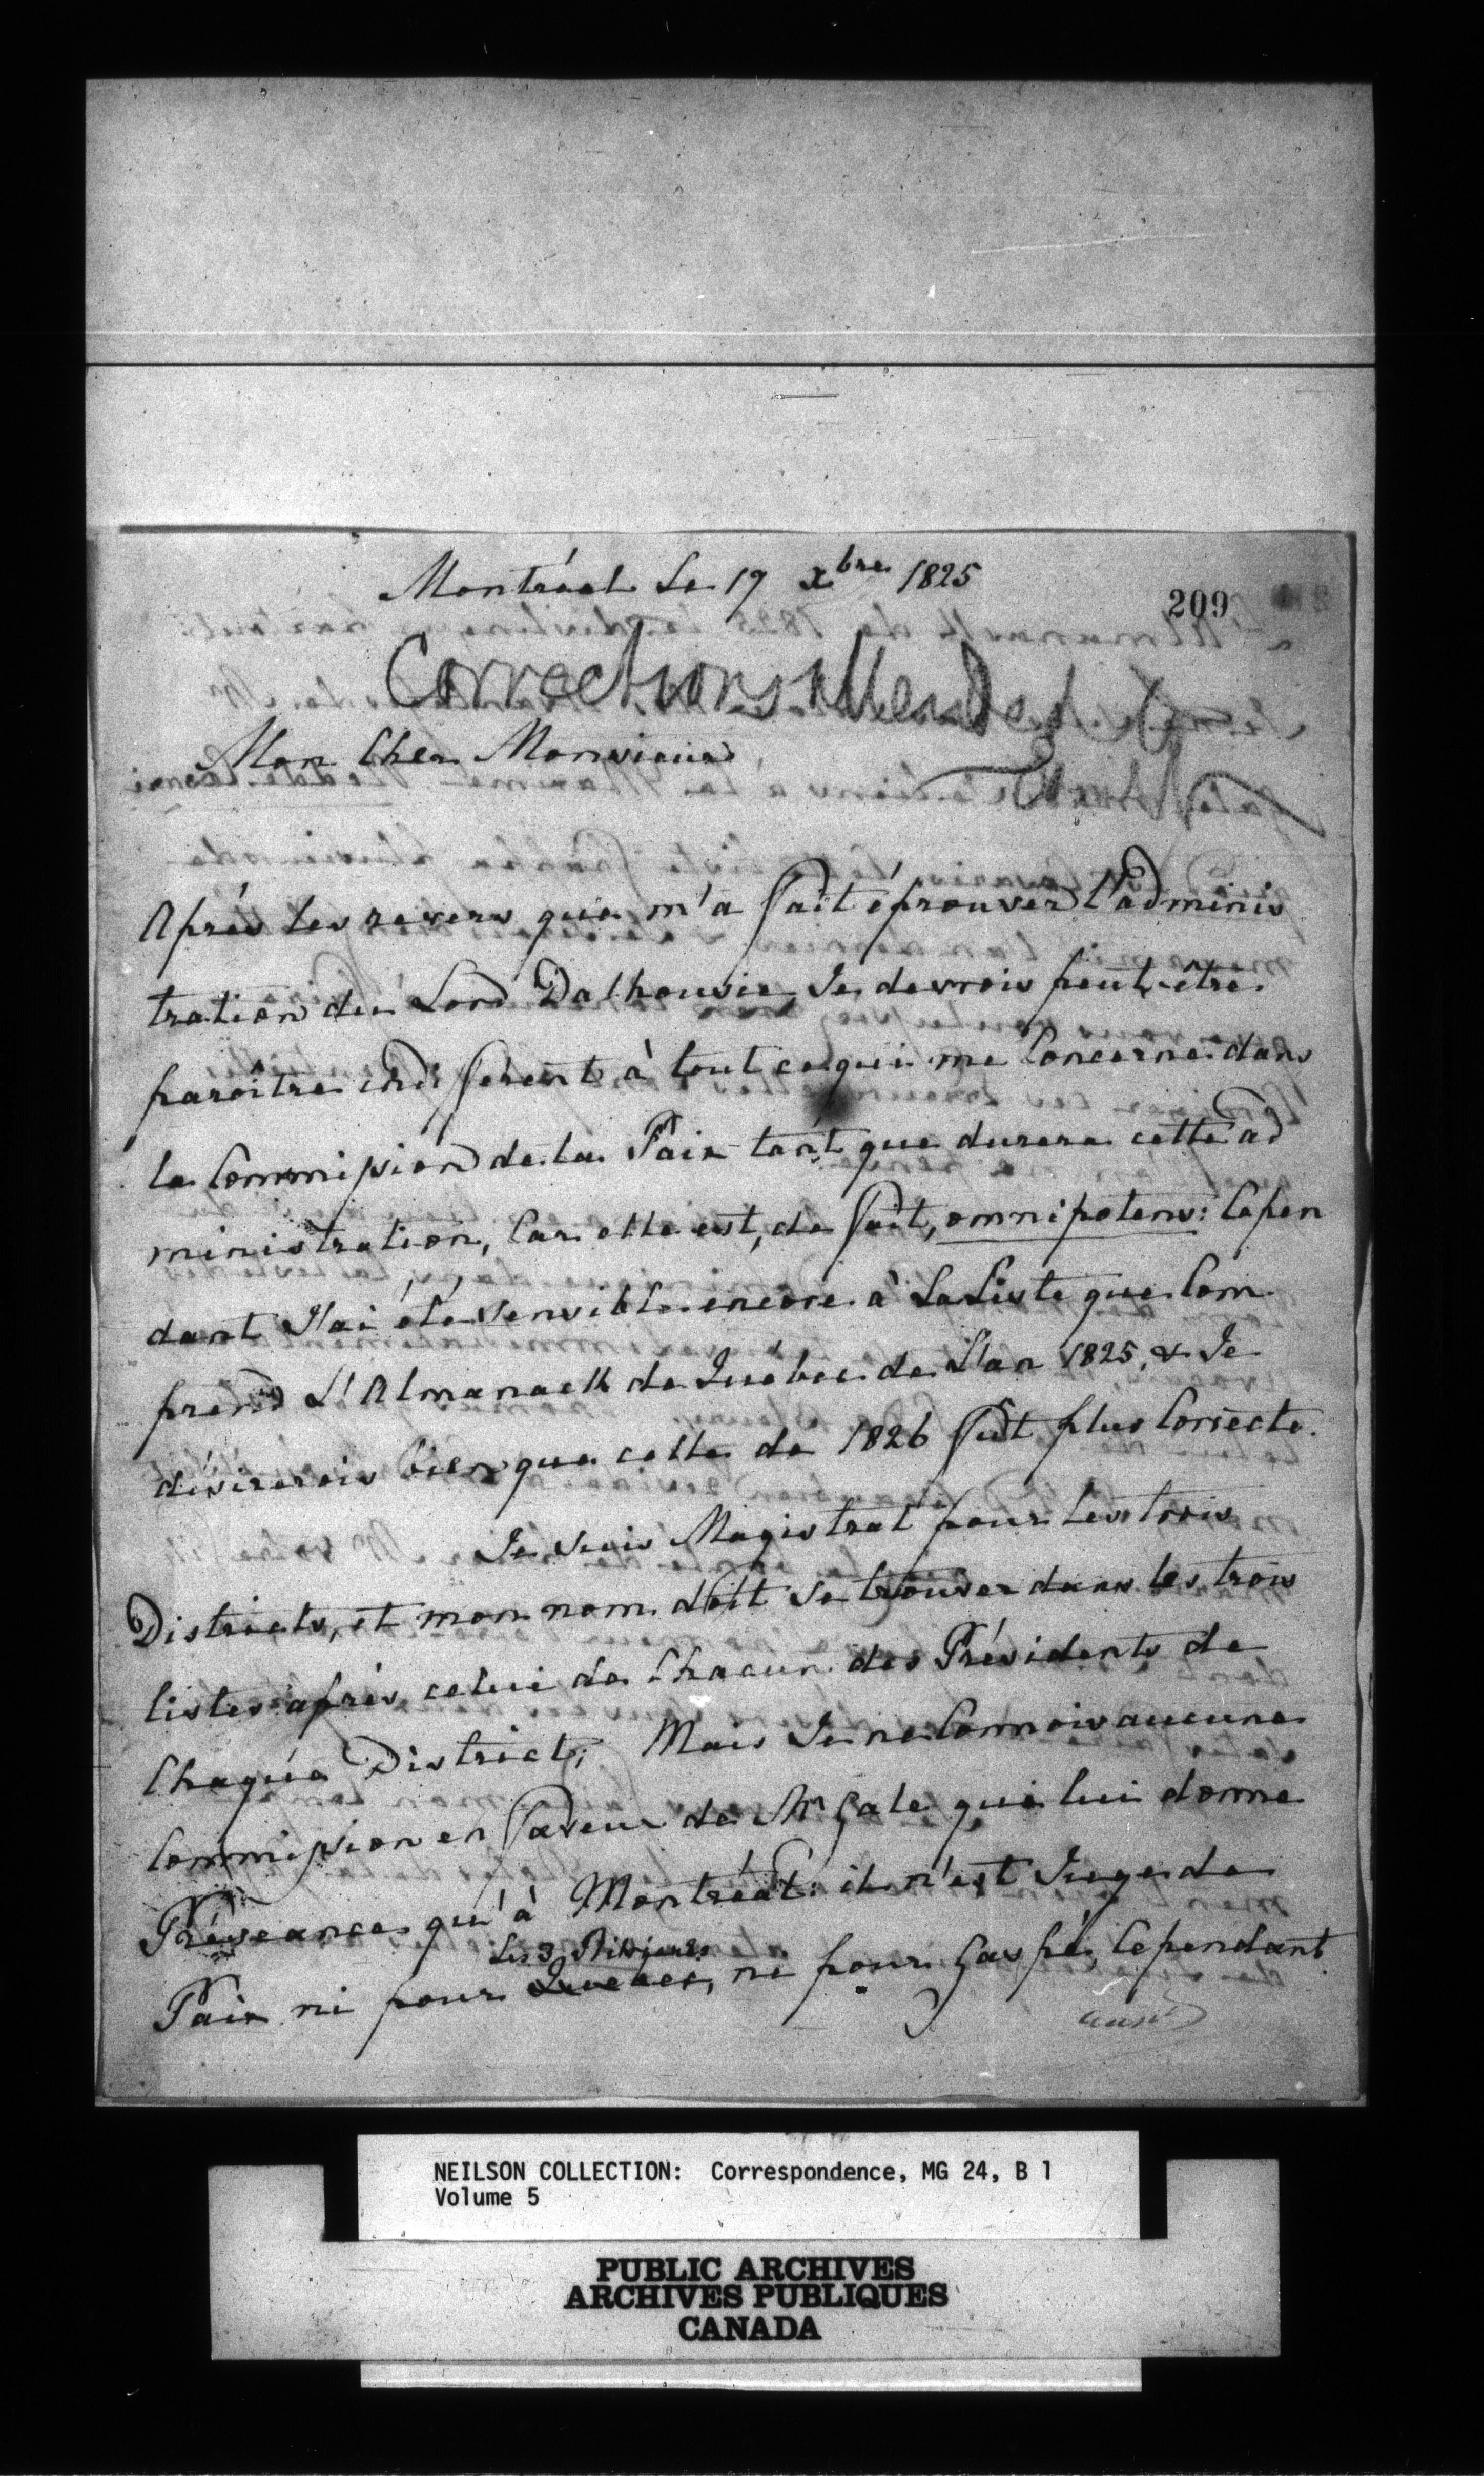 Montréal Le 19 xbre 1825
209
Corrections attended to
Mon Cher Monsieur
Après les revers que m'a fait éprouver l'adminis
tration du Lord Dalhousie, Je devrois peut-être
paroître indifférent à tout ce qui me Concerne dans
la Commission de la Paix tant que durera cette ad
ministration, Car elle est, de fait, omnipotens: Cepen
dant J'ai été sensible encore à La Liste que Com
prend L'Almanack de Québec de L'an 1825, & Je
désirerois bien que celle de 1826 fut plus Correcte.
Je suis Magistrat pour les trois
Districts, et mon nom doit se trouver dans les trois
listes après celui de Chacun des Présidents de
Chaque District; Mais Je ne Connois aucune
Commission en faveur de Mr Gale qui lui donne
Préséance qu'à Montréal: il n'est Juge de
Les 3 Rivieres
Paix ni pour Quebec, ni pour Gaspé, Cependant
NEILSON COLLECTION: Correspondence, MG 24, B 1
Volume 5
PUBLIC ARCHIVES
ARCHIVES PUBLIQUES
CANADA